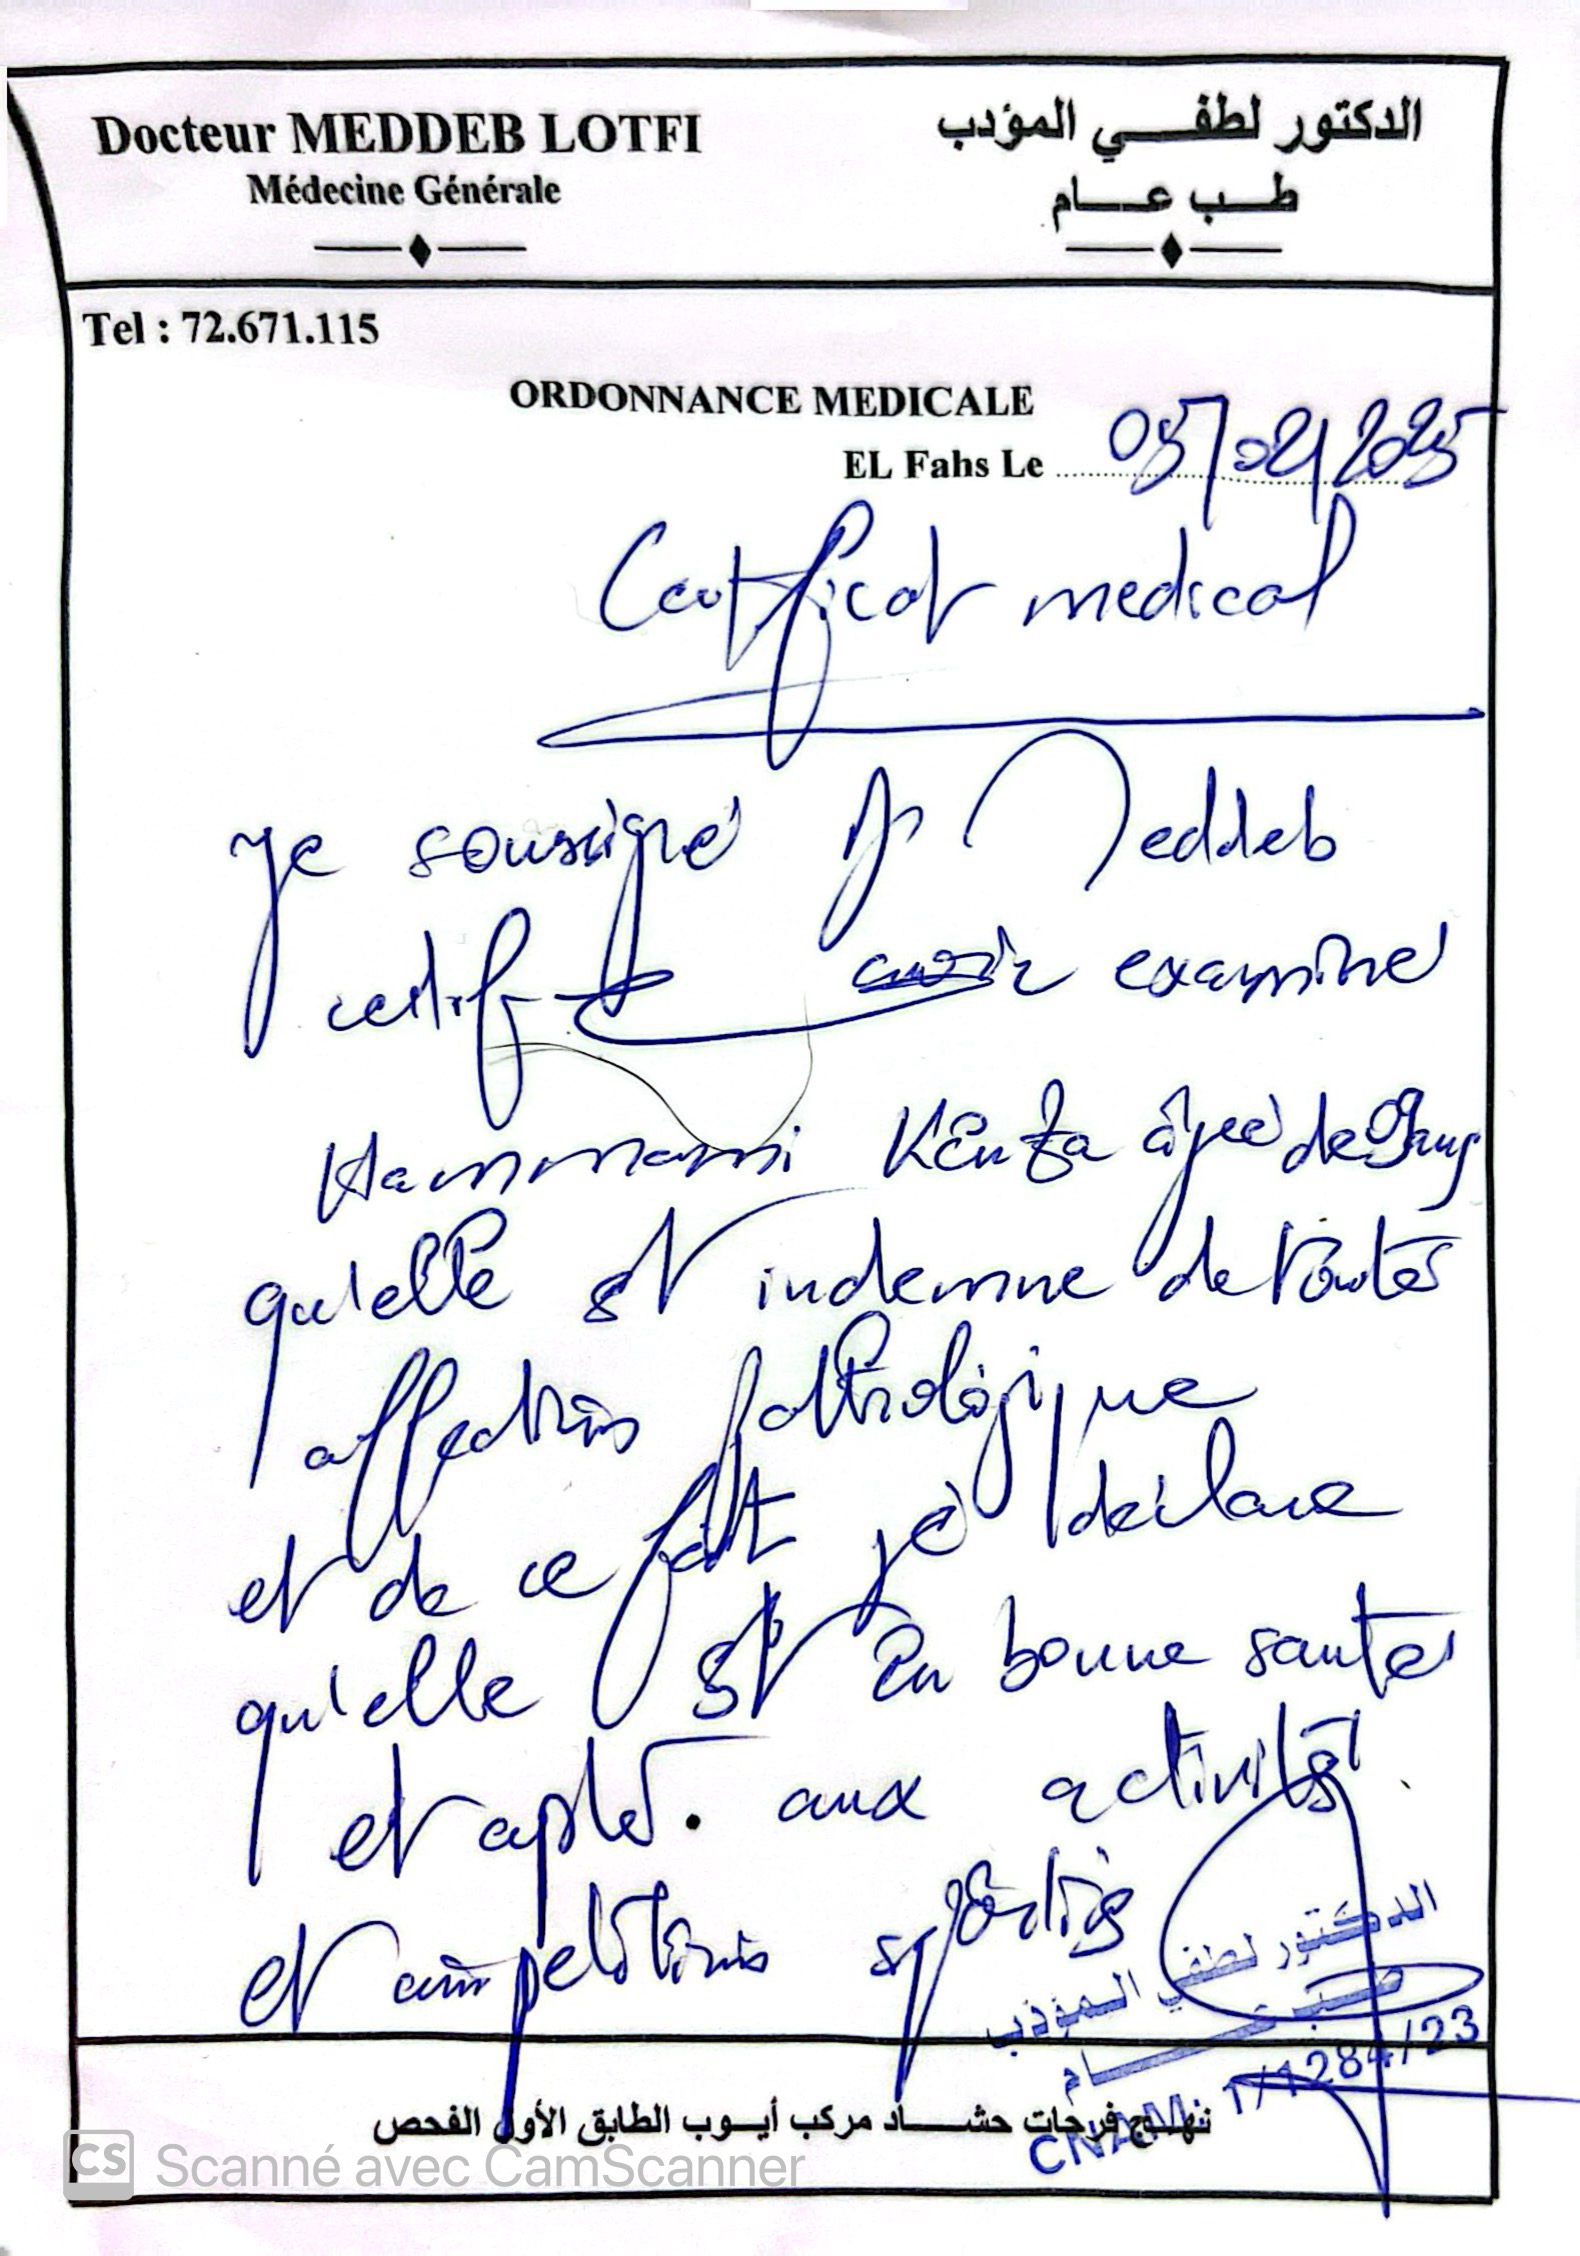 Docteur MEDDEB LOTFI
Médecine Générale
الدكتور لطفي المؤدب
طب عام
Tel : 72.671.115
ORDONNANCE MEDICALE
EL Fahs Le 05/02/2025
Certificat medical
Je soussigné Dr Meddeb
certifie avoir examiné
Hammami Kenza âgée de 09 ans
qu'elle est indemne de toutes
affections pathologique
et de ce fait je déclare
qu'elle est en bonne santé
et apte. aux activités
et compétitions sportives
الدكتور لطفي المؤدب
طب عام
CNAM 1/1284/23
نهج فرحات حشاد مركب أيوب الطابق الأول الفحص
CS Scanné avec CamScanner